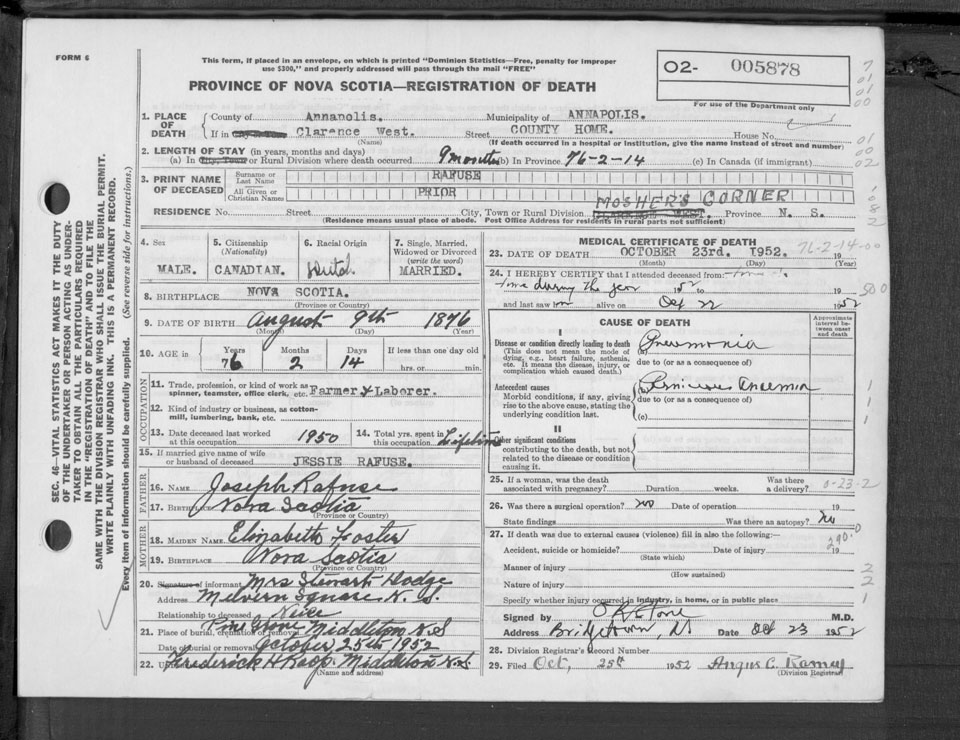 FORM 6
This form, if placed in an envelope, on which is printed "Dominion Statistics—Free, penalty for improper
use $300," and properly addressed will pass through the mail "FREE"
PROVINCE OF NOVA SCOTIA—REGISTRATION OF DEATH
O2- 005878
For use of the Department only
1. PLACE OF DEATH
County of Annapolis. Municipality of ANNAPOLIS.
If in Clarence West. Street COUNTY HOME. House No.
(Name) (If death occurred in a hospital or institution, give the name instead of street and number)
2. LENGTH OF STAY (in years, months and days)
(a) In City, Town or Rural Division where death occurred 9 months (b) In Province 76-2-14 (c) In Canada (if immigrant)
3. PRINT NAME OF DECEASED
Surname or Last Name RAFUSE
All Given or Christian Names PRIOR
MOSHER'S CORNER
RESIDENCE No. Street City, Town or Rural Division CLARENCE WEST. Province N. S.
(Residence means usual place of abode. Post Office Address for residents in rural parts not sufficient)
4. Sex MALE.
5. Citizenship (Nationality) CANADIAN.
6. Racial Origin Dutch
7. Single, Married, Widowed or Divorced (write the word) MARRIED.
8. BIRTHPLACE NOVA SCOTIA.
(Province or Country)
9. DATE OF BIRTH August 9th 1876
(Month) (Day) (Year)
10. AGE in Years 76 Months 2 Days 14 If less than one day old hrs. or min.
OCCUPATION
11. Trade, profession, or kind of work as spinner, teamster, office clerk, etc. Farmer & Laborer.
12. Kind of industry or business, as cotton-mill, lumbering, bank, etc.
13. Date deceased last worked at this occupation 1950
14. Total yrs. spent in this occupation Lifetime
15. If married give name of wife or husband of deceased JESSIE RAFUSE.
FATHER
16. NAME Joseph Rafuse
17. BIRTHPLACE Nova Scotia
(Province or Country)
MOTHER
18. MAIDEN NAME Elizabeth Foster
19. BIRTHPLACE Nova Scotia
(Province or Country)
20. Signature of informant Mrs Stewart Hodge
Address Melvern Square N. S.
Relationship to deceased Neice
21. Place of burial, cremation or removal Pine Grove Middleton N.S
Date of burial or removal October 25th 1952
22. Undertaker Frederick H Roop. Middleton N.S.
(Name and address)
MEDICAL CERTIFICATE OF DEATH
23. DATE OF DEATH OCTOBER 23rd. 1952. 19
(Month) (Day) (Year)
76-2-14-00
24. I HEREBY CERTIFY that I attended deceased from: time to
time during the year 1952 to 19
and last saw him alive on Oct 22 1952
CAUSE OF DEATH
Approximate interval between onset and death
I
Disease or condition directly leading to death (a) Pneumonia
(This does not mean the mode of dying, e.g., heart failure, asthenia, etc. It means the disease, injury, or complication which caused death.)
due to (or as a consequence of)
Antecedent causes (b) Pernicious Anaemia
Morbid conditions, if any, giving rise to the above cause, stating the underlying condition last.
due to (or as a consequence of)
(c)
II
Other significant conditions
contributing to the death, but not related to the disease or condition causing it.
25. If a woman, was the death associated with pregnancy? Duration weeks. Was there a delivery?
26. Was there a surgical operation? No Date of operation 19
State findings Was there an autopsy? No
27. If death was due to external causes (violence) fill in also the following:—
Accident, suicide or homicide? Date of injury 19
(State which)
Manner of injury
(How sustained)
Nature of injury
Specify whether injury occurred in industry, in home, or in public place
Signed by M.D.
Address Bridgetown, NS Date Oct 23 1952
28. Division Registrar's Record Number
29. Filed Oct, 25th 1952 Angus C. Ramey
(Division Registrar)
SEC. 46—VITAL STATISTICS ACT MAKES IT THE DUTY
OF THE UNDERTAKER OR PERSON ACTING AS UNDER-
TAKER TO OBTAIN ALL THE PARTICULARS REQUIRED
IN THE "REGISTRATION OF DEATH" AND TO FILE THE
SAME WITH THE DIVISION REGISTRAR WHO SHALL ISSUE THE BURIAL PERMIT.
WRITE PLAINLY WITH UNFADING INK. THIS IS A PERMANENT RECORD.
Every item of information should be carefully supplied. (See reverse side for instructions.)